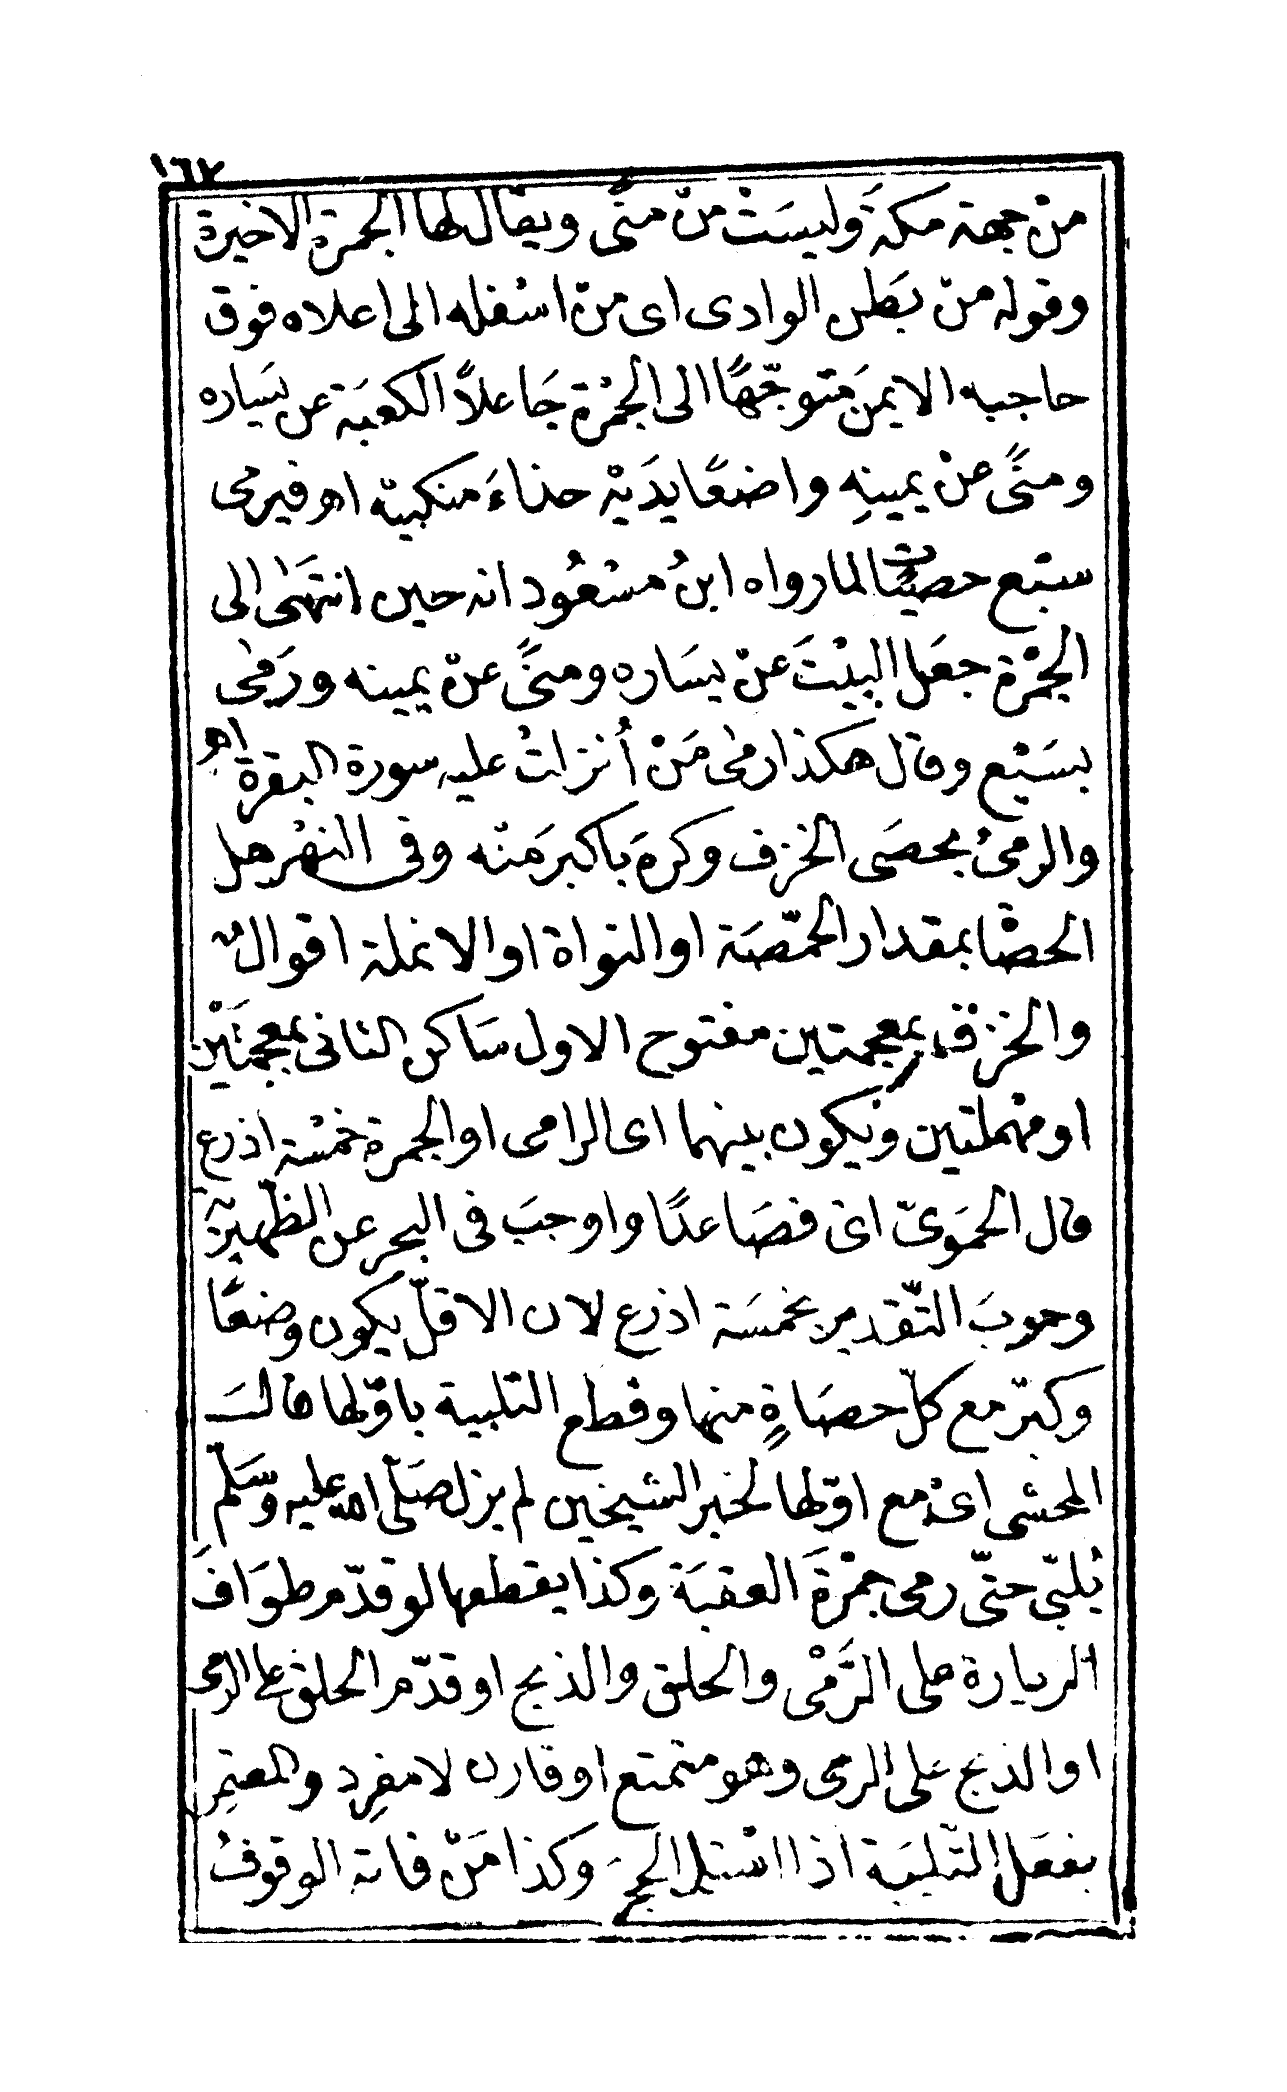 ١٦٧
من جهة مكة وليسَتْ من منًى ويقال لها الجمرة الاخيرة
وقوله من بَطن الوادى اى منْ اسْفله الى اعلاه فوق
حاجبه الايمَن متوجّهًا الى الجمْرة جَاعلاً الكعبَة عن يسَاره
ومنًى عنْ يمينهِ واضعًا يدَيْه حذاءَ منكبيْه اهـ فيرمى
سبْع حصيات لما رواه ابنُ مسْعُود انه حين انتهَى الى
الجمْرة جعَل البيْتَ عنْ يسَاره ومنًى عنْ يمينه ورَمىٰ
بسَبْع وقال هكذا رمىٰ مَنْ أُنزلتْ عليه سورة البقرة اهـ
والرمىُ بحصَى الخزف وكرهَ باكبرَ منْه وفى النهْر هل
الحصَا بمقدار الحمّصَة او النواة او الانملة اقوالٌ
والخزف بمعجمتين مفتوح الاول سَاكن الثانى بمعجمتَيْن
او مهْملتين ويكون بينهما اى الرامى او الجمرة خمْسة اذرع
قال الحمَوىّ اىْ فصَاعدًا واوجبَ فى البحر عن الظّهيريّة
وجوبَ التّقديم بخمسَة اذرع لان الاقلّ يكون وضعًا
وكبّر مع كلّ حصَاةٍ منها وقطع التلبية باوّلها قالَ
المحشى اىْ مع اوّلها لخبر الشيخين لم يزل صَلّى الله عليه وسَلّم
يُلبّى حتّى رمى جمْرَةَ العقبَة وكذا يقطعها لو قدّم طوَافَ
الزيارة على الرَّمْى والحلق والذبح او قدّم الحلق على الرمى
او الذبح على الرمى وهو متمتع او قارن لا مفرد والمعتمِر
يفعَل التّلبيَة اذا اسْتلم الحجرَ وكذا مَنْ فاته الوقوفُ